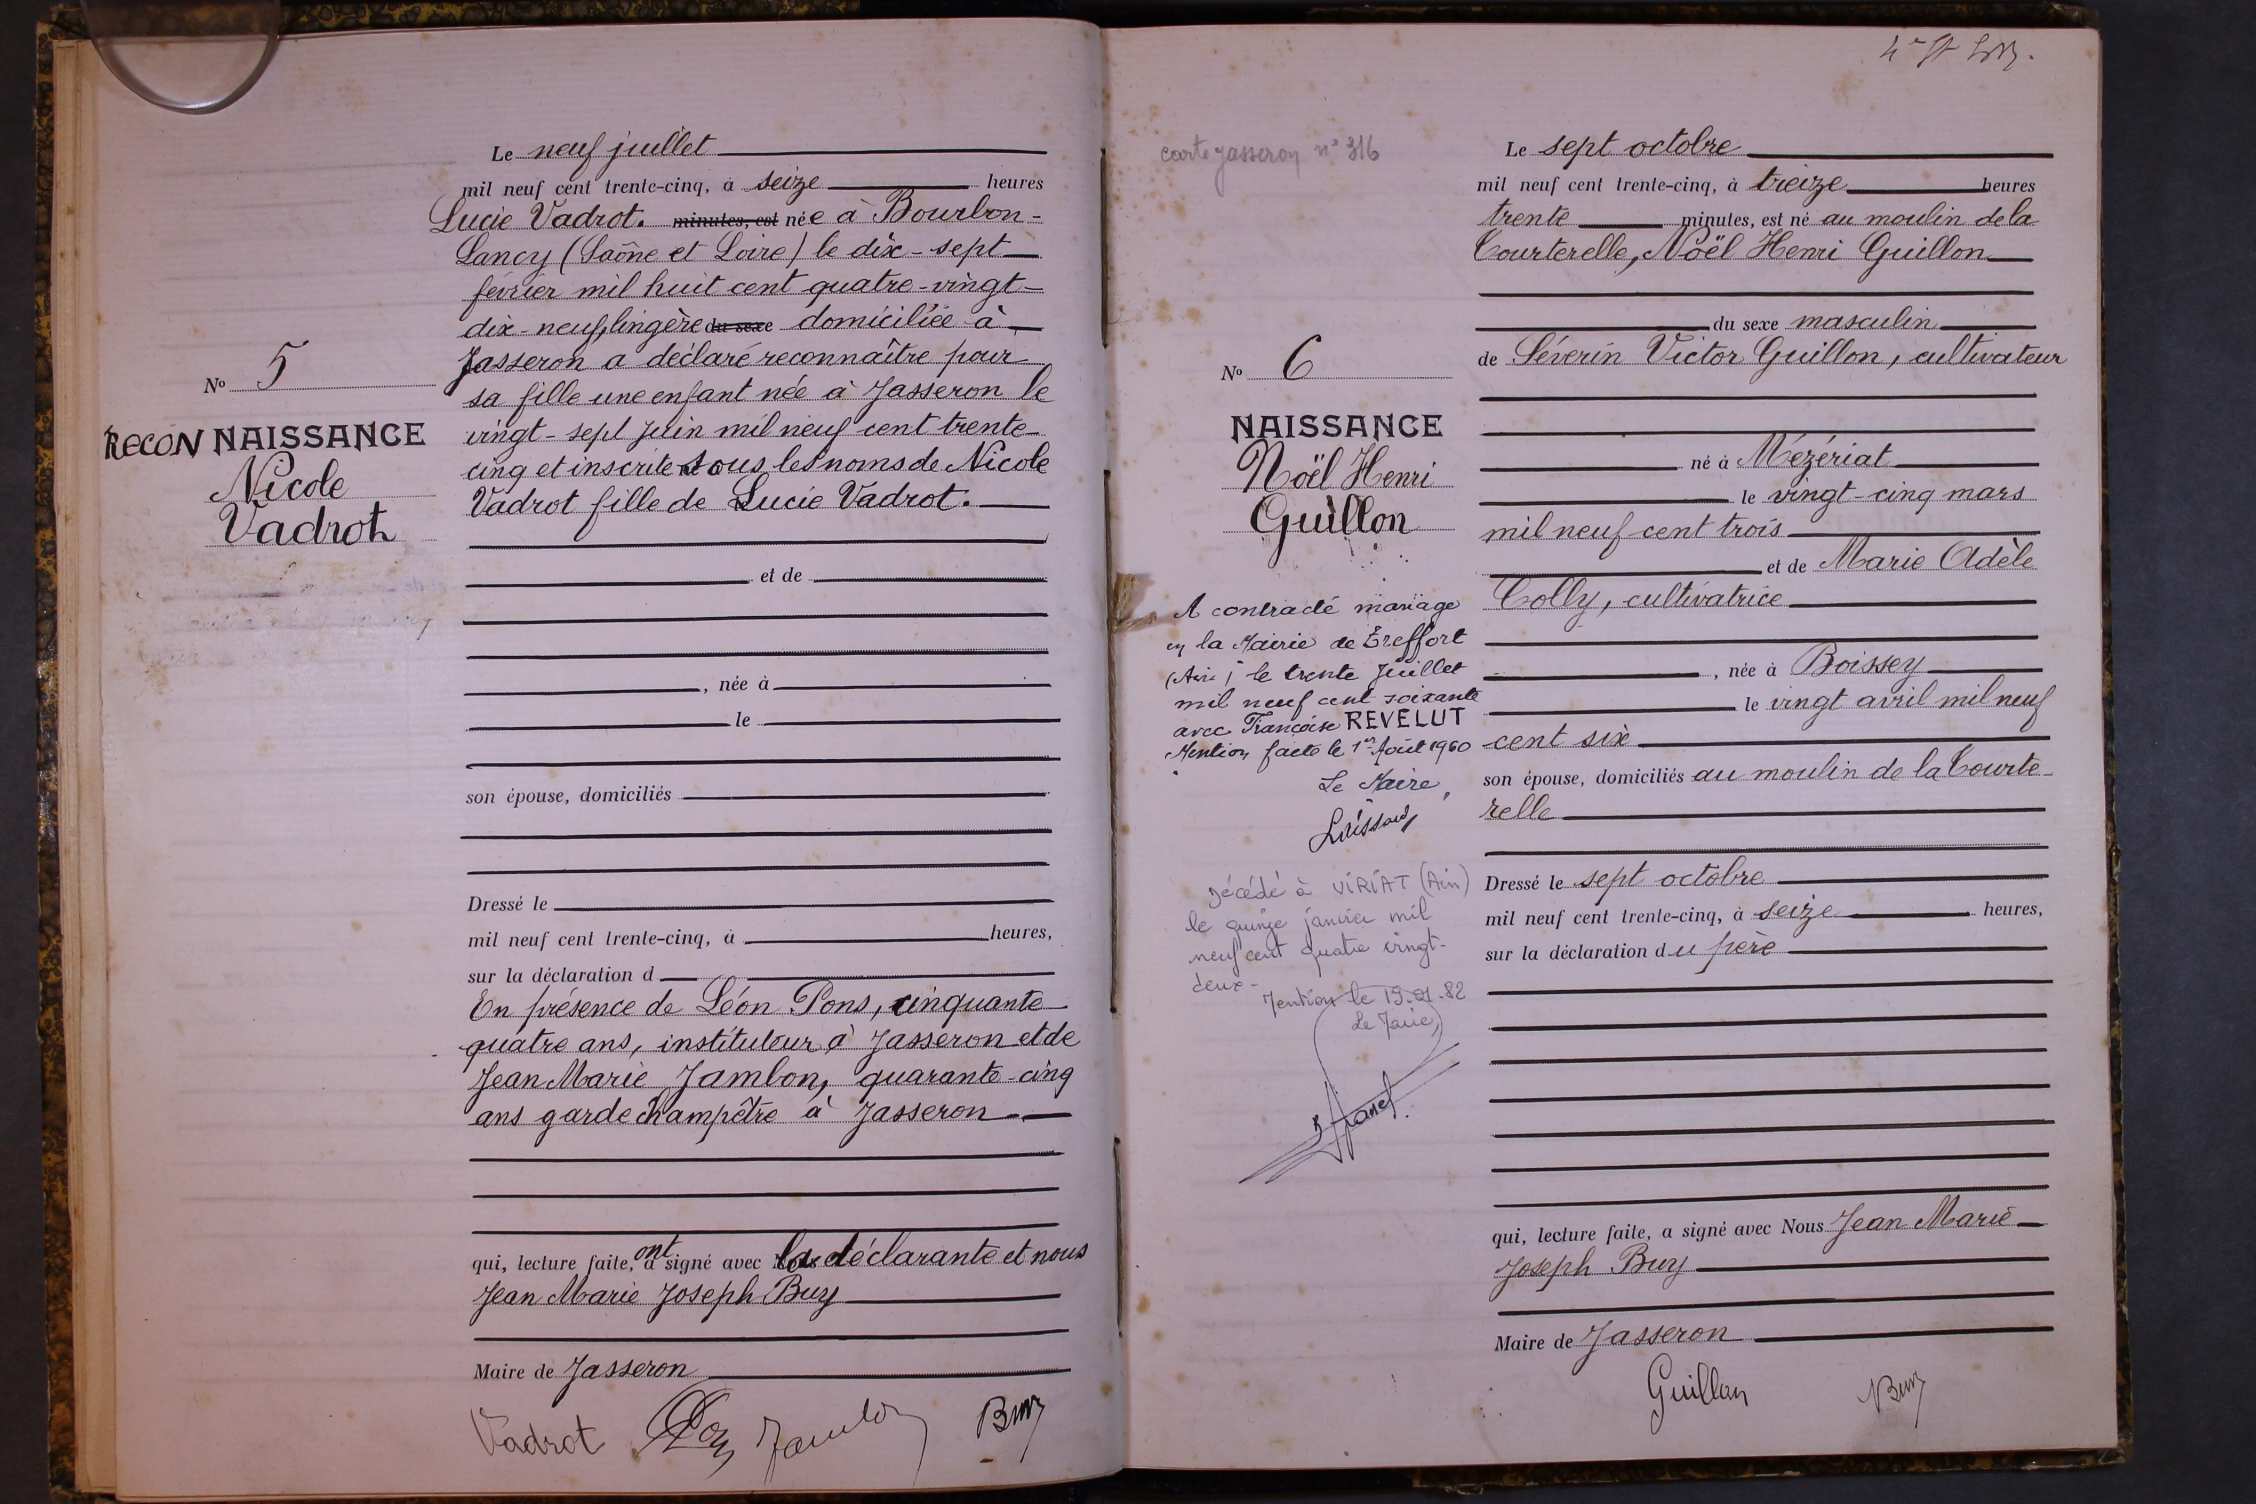 Le neuf juillet
mil neuf cent trente-cinq, à seize heures
Lucie Vadrot. minutes, est née à Bourbon-
Lancy (Saône et Loire) le dix-sept
février mil huit cent quatre-vingt-
dix-neuf, lingère du sexe domiciliée à
Jasseron a déclaré reconnaître pour
sa fille une enfant née à Jasseron le
vingt-sept juin mil neuf cent trente-
cinq et inscrite sous les noms de Nicole
Vadrot fille de Lucie Vadrot.
No 5
RECONNAISSANCE
Nicole
Vadrot
et de
, née à
le
son épouse, domiciliés
Dressé le
mil neuf cent trente-cinq, à heures,
sur la déclaration d
En présence de Léon Pons, cinquante
quatre ans, instituteur à Jasseron et de
Jean Marie Jambon, quarante-cinq
ans garde champêtre à Jasseron
qui, lecture faite, ont signé avec la déclarante et nous
Jean Marie Joseph Buy
Maire de Jasseron
Vadrot Pons Jambon Buy
carte Jasseron n° 316
Le sept octobre
mil neuf cent trente-cinq, à treize heures
trente minutes, est né au moulin de la
Courterelle, Noël Henri Guillon
du sexe masculin
de Séverin Victor Guillon, cultivateur
né à Mézériat
le vingt-cinq mars
mil neuf cent trois
et de Marie Adèle
Colly, cultivatrice
, née à Boissey
le vingt avril mil neuf
cent six
son épouse, domiciliés au moulin de la Courte-
relle
Dressé le sept octobre
mil neuf cent trente-cinq, à seize heures,
sur la déclaration du père
qui, lecture faite, a signé avec Nous Jean Marie
Joseph Buy
Maire de Jasseron
Guillon Buy
No 6
NAISSANCE
Noël Henri
Guillon
A contracté mariage
en la Mairie de Treffort
(Ain) le trente Juillet
mil neuf cent soixante
avec Françoise REVELUT
Mention faite le 1er Août 1960
Le Maire,
Décédé à VIRIAT (Ain)
le quinze janvier mil
neuf cent quatre vingt-
deux-
Mention le 19-01-82
Le Maire,